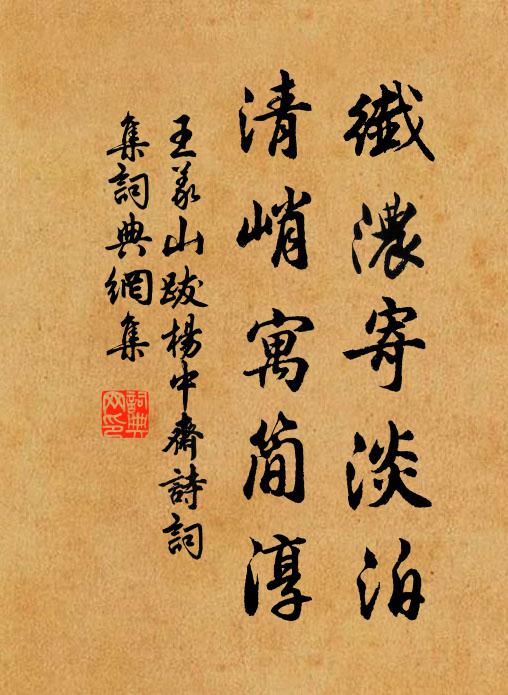 纖濃寄淡泊
清峭寓簡淳
王義山跋楊中齋詩詞
集詞典網集
詞典網印